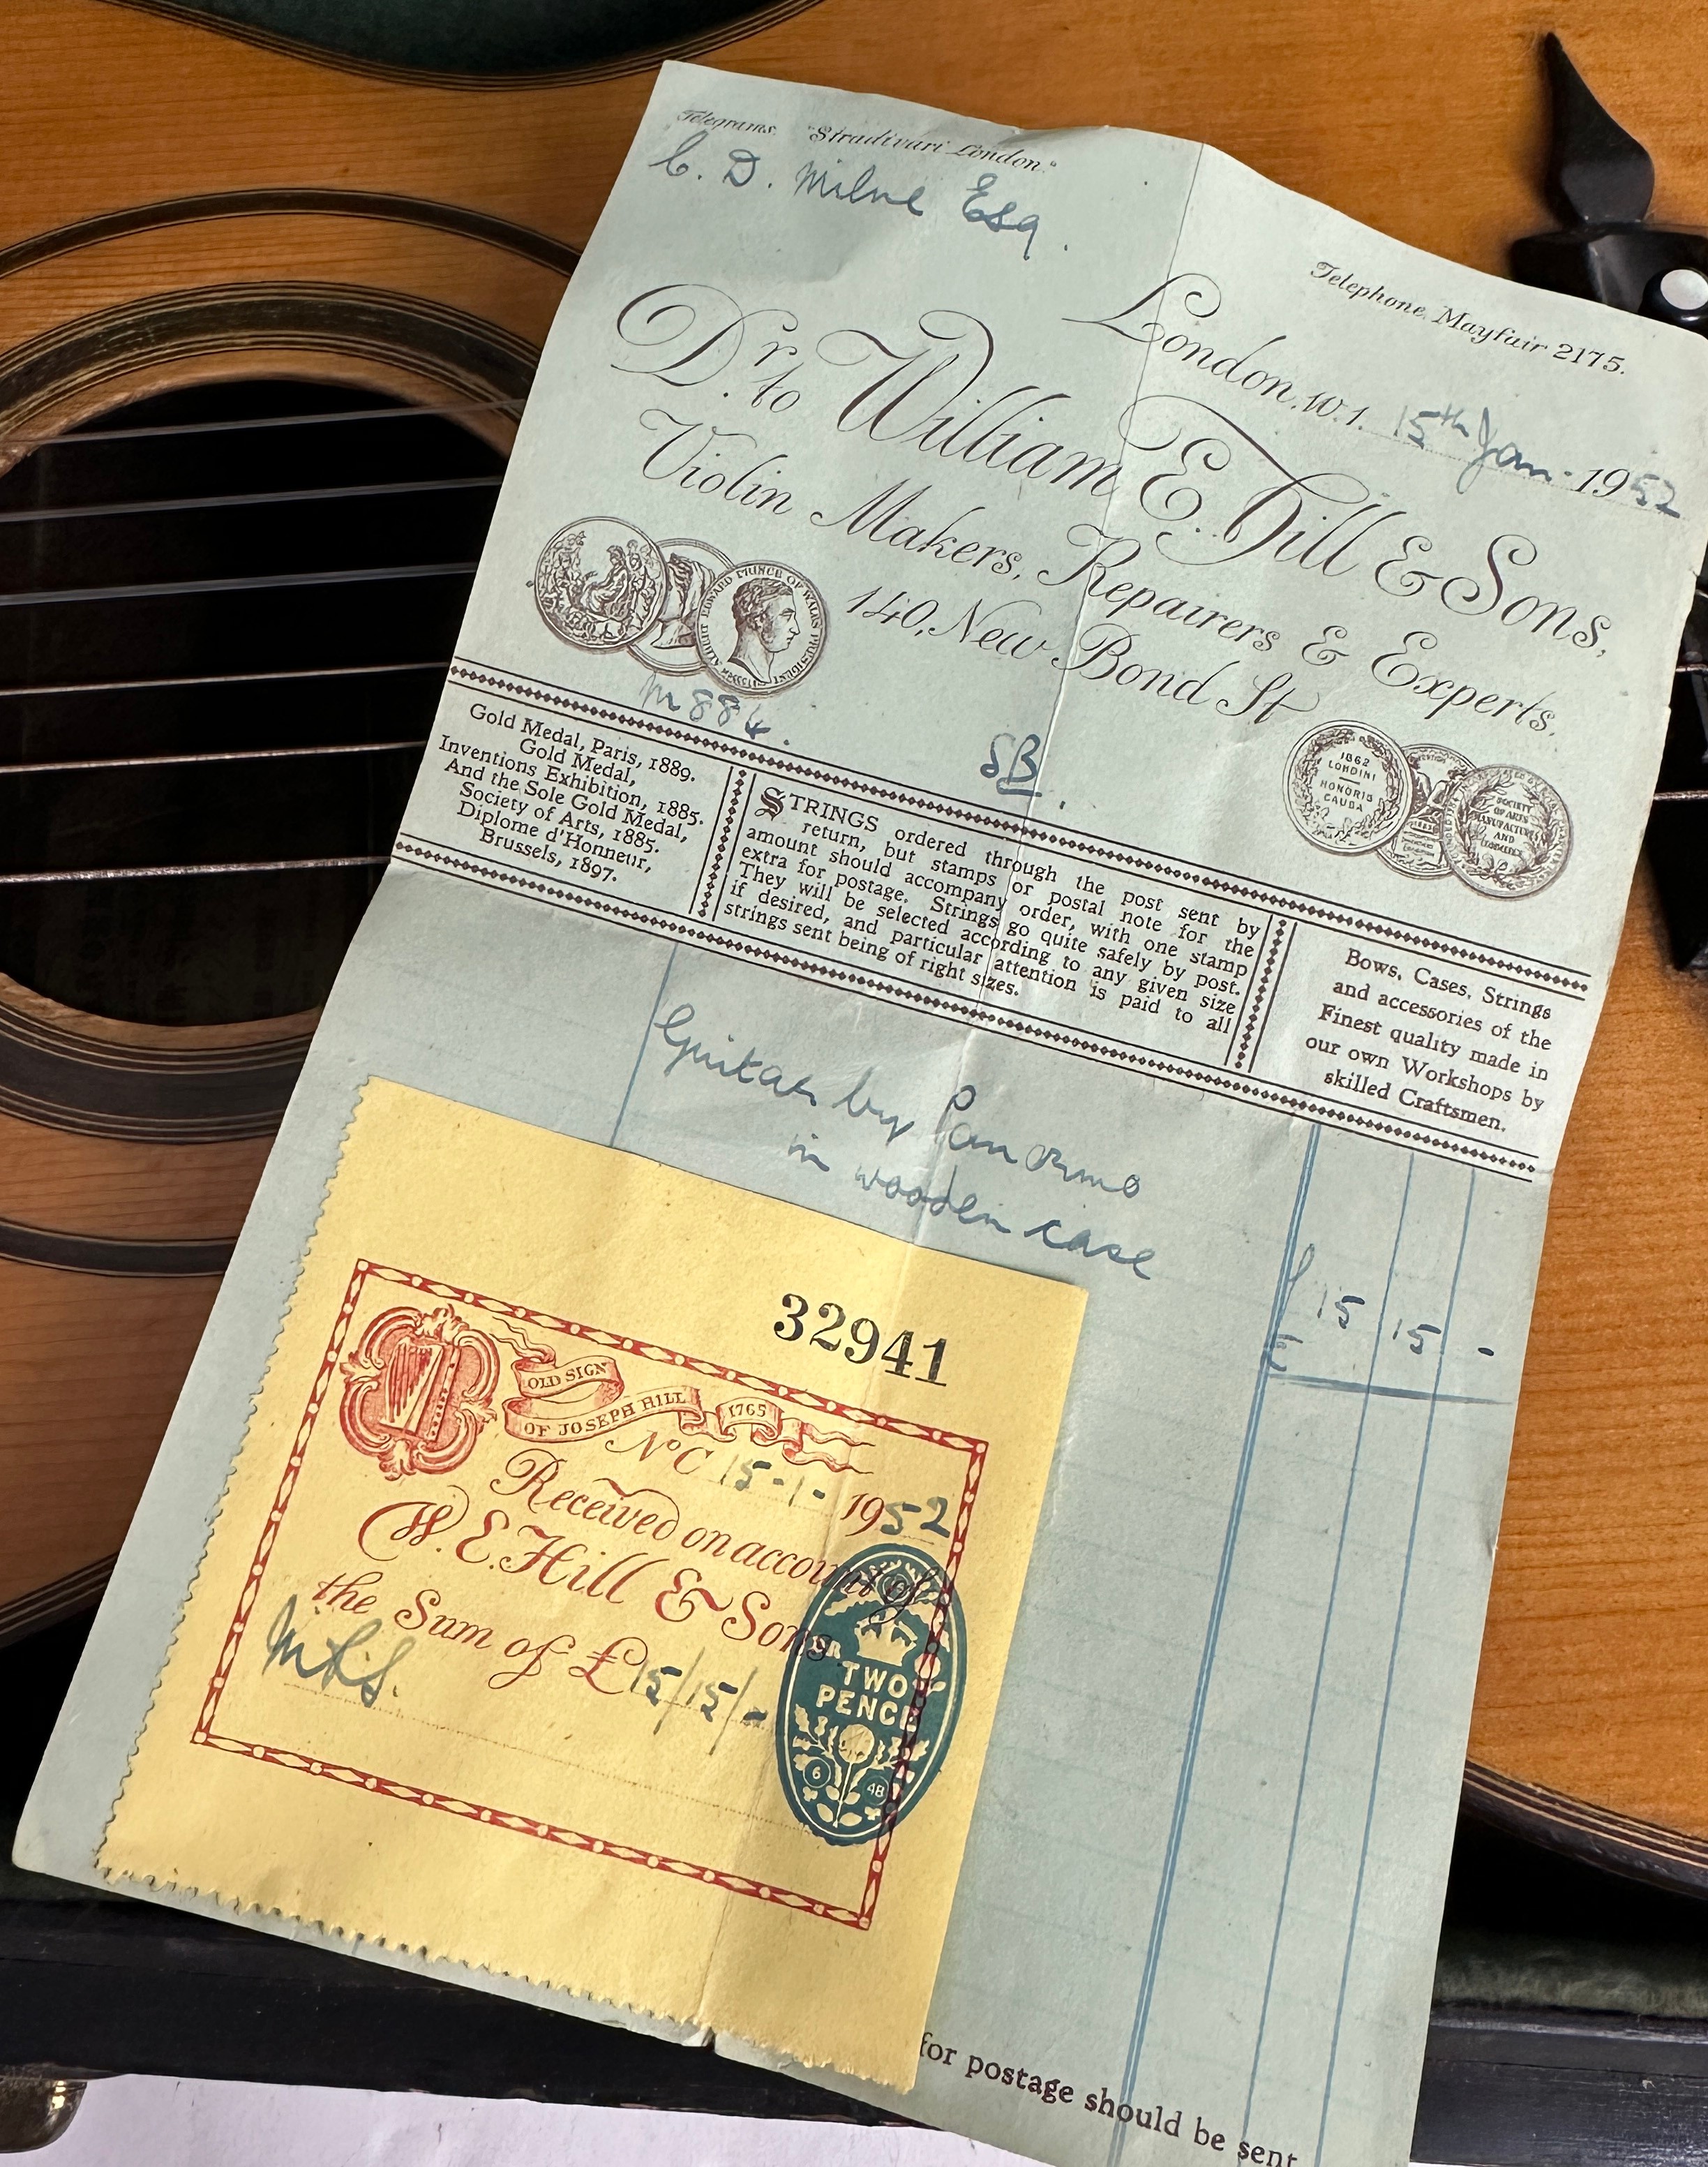 Telegrams. "Stradivari London."
C. D. Milne Esq.
Telephone, Mayfair 2175.
London, W.1. 15th Jan. 1952
Dr. to William E. Hill & Sons,
Violin Makers, Repairers & Experts,
140, New Bond St
ALBERT EDWARD PRINCE OF WALES PRESIDENT
1862
LONDINI
HONORIS
CAUSA
SOCIETY
OF ARTS
MANUFACTURES
AND
COMMERCE
M884.
SB.
Gold Medal, Paris, 1889.
Gold Medal,
Inventions Exhibition, 1885.
And the Sole Gold Medal,
Society of Arts, 1885.
Diplome d'Honneur,
Brussels, 1897.
STRINGS ordered through the post sent by
return, but stamps or postal note for the
amount should accompany order, with one stamp
extra for postage. Strings go quite safely by post.
They will be selected according to any given size
if desired, and particular attention is paid to all
strings sent being of right sizes.
Bows, Cases, Strings
and accessories of the
Finest quality made in
our own Workshops by
skilled Craftsmen.
Guitar by Panormo
in wooden case
£ 15 15 -
32941
OLD SIGN
OF JOSEPH HILL 1765
No C 15-1-1952
Received on account of
W. E. Hill & Sons
the Sum of £15/15/-
TWO
PENCE
6 48
for postage should be sent